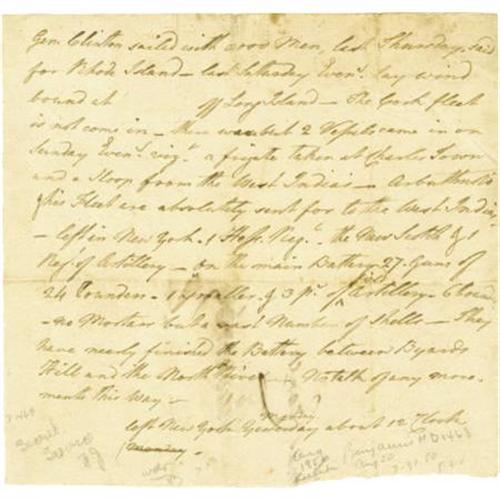 Gen. Clinton sailed with 2000 Men, last Thursday, said
for Rhode Island — last Saturday Even.g lay wind
bound at off Long Island — The Cork fleet
is not come in — there was but 2 Vessels came in on
Sunday Even.g viz.t a frigate taken at Charles Town
and a Sloop from the West Indies — Arbuthnot &
his Fleet are absolutely sent for to the West Indies
— left in New York, 1 Hess. Reg.t the New Scotch & 1
Reg. of Artillery — On the main Battery 27 Guns of
24 Pounders — 1 smaller & 3 p.s of Artillery
— no Mortars but a vast Number of Shells — They
have nearly finished the Battery between Byards
Hill and the North River — No talk of any move-
ments this Way —
monday
left New York Yesterday about 12 O'Clock
monday
Secret
Benjamin H D1468
Aug 20